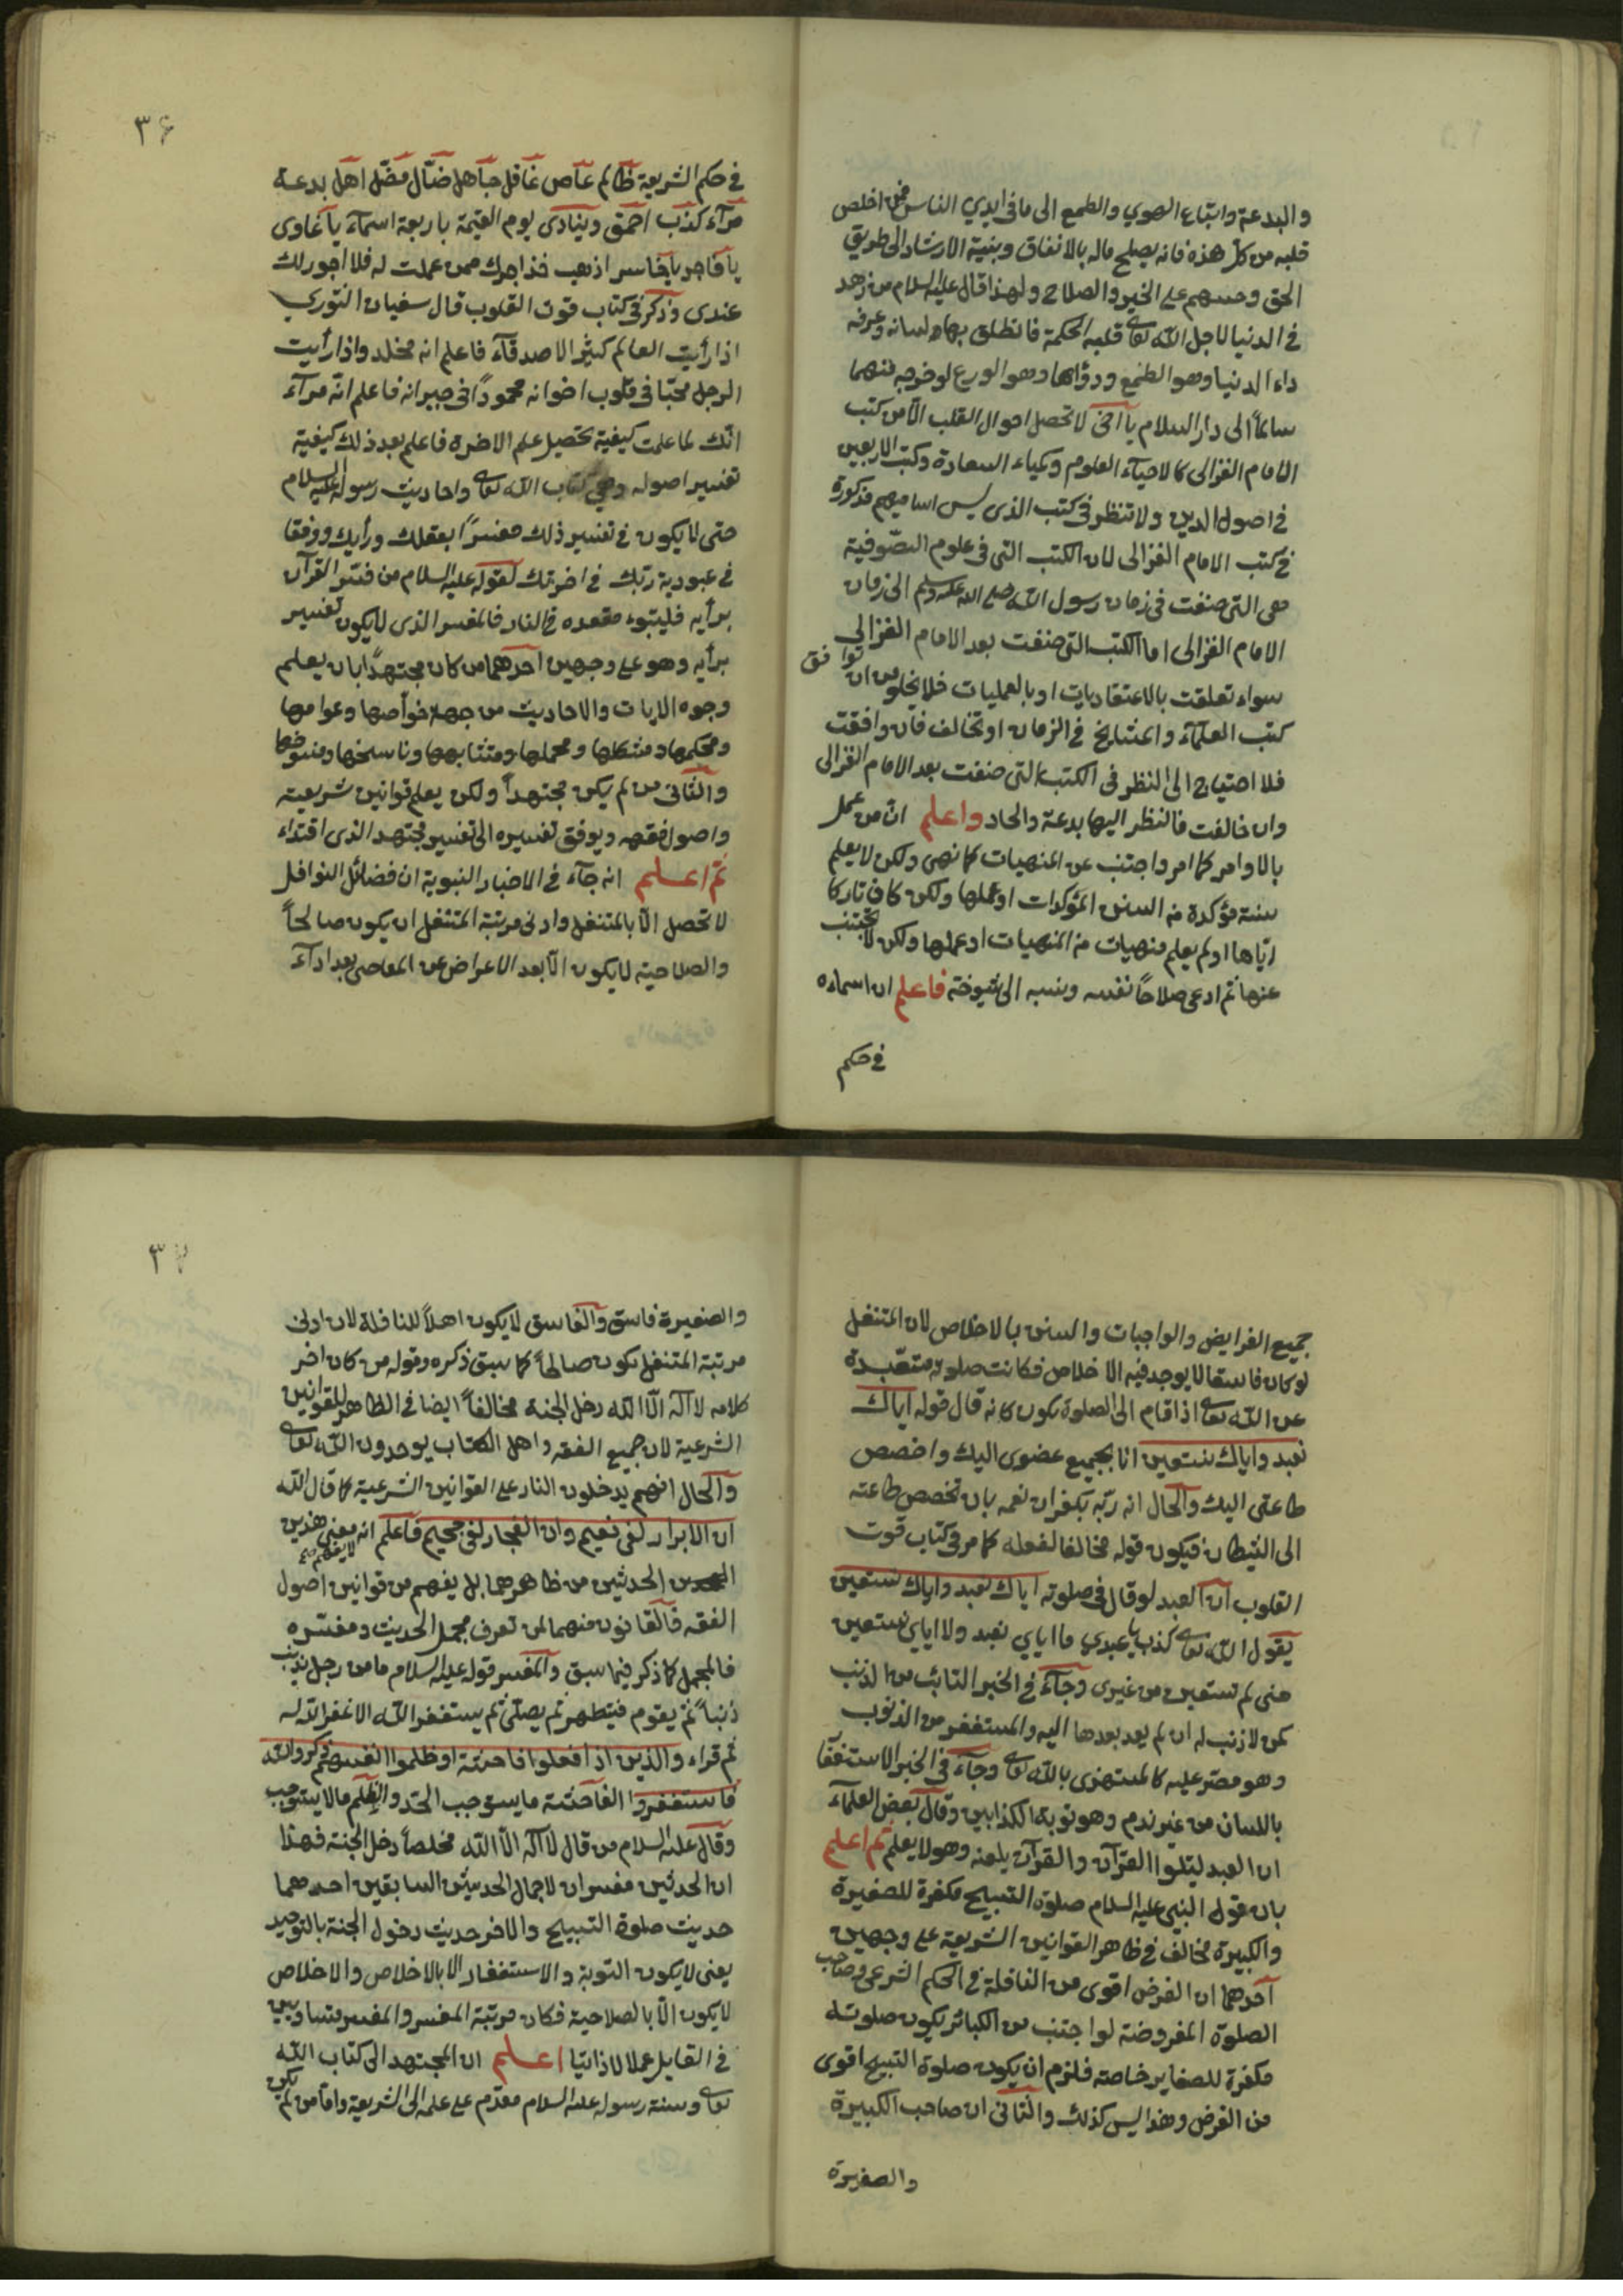 والبدعة واتباع الهوي والطمع الى ما في ايدي الناس فمن اخلص
قلبه من كل هذه فانه يصلح ماله بالانفاق وبنية الارشاد الى طريق
الحق وحسهم على الخير والصلاح ولهذا قال عليه السلام من زهد
في الدنيا لاجل الله تعالى قلبه الحكمة فانطلق بها لسانه وعرفه
داء الدنيا وهو الطمع ودواها وهو الورع لو خرجه منهما
سالماً الى دار السلام يا اخى لا تحصل احوال القلب الا من كتب
الامام الغزالى كالاحياء العلوم وكيمياء السعادة وكتب الاربعين
في اصول الدين ولا تنظر في كتب الذى ليس اساميهم مذكورة
في كتب الامام الغزالى لان الكتب التى في علوم الصّوفية
هى التى صنفت في زمان رسول الله صلى الله عليه وسلم الى زمان
الامام الغزالى اما الكتب التى صنفت بعد الامام الغزالى
سواء تعلقت بالاعتقاديات او بالعمليات فلا يخلو من ان توافق
كتب العلماء والمشايخ في الزمان او تخالف فان وافقت
فلا احتياج الى النظر في الكتب التى صنفت بعد الامام الغزالى
وان خالفت فالنظر اليها بدعة والحاد واعلم ان من عمل
بالاوامر كما امر واجتنب عن المنهيات كما نهى ولكن لا يعلم
سنة مؤكدة من السنن المؤكدات او عملها ولكن كان تاركا
اياها او لم يعلم منهيات من المنهيات او عملها ولكن لا يجتنب
عنها ثم ادعى صلاحاً نفسه وبنسبه الى شيوخته فاعلم ان اسماءه
في حكم
٣۶
في حكم الشريعة ظالم عاص غافل جاهل ضال مضل اهل بدعة
مرآء كذب احمق وينادى يوم القيمة باربعة اسماء يا غاوى
يا فاجر يا خاسر اذهب فخذ اجرك ممن عملت له فلا اجور لك
عندى وذكر في كتاب قوت القلوب قال سفيان الثوري
اذا رأيت العالم كثير الاصدقاء فاعلم انه مخلد واذا رأيت
الرجل محبّا في قلوب اخوانه محموداً في جيرانه فاعلم انه مرآء
انك لما علمت كيفية تحصيل علم الاخرة فاعلم بعد ذلك كيفية
تفسير اصوله وهي كتاب الله تعالى واحاديث رسوله عليه السلام
حتى لا يكون في تفسير ذلك مفسراً بعقلك ورأيك ووفقا
في عبودية ربّك في اخرتك لقوله عليه السلام من فسّر القرآن
برأيه فليتبوء مقعده في النار فالمفسر الذى لا يكون تفسير
برأيه وهو على وجهين احدهما من كان مجتهداً بان يعلم
وجوه الايات والاحاديث من جهة خواصها وعوامها
ومحكمها ومشكلها ومجملها ومتشابهها وناسخها ومنسوخها
والثانى من لم يكن مجتهداً ولكن يعلم قوانين شريعيته
واصول فقهه ويوفق تفسيره الى تفسير مجتهد الذى اقتداء
ثم اعلم انه جاء في الاخبار النبوية ان فضائل النوافل
لا تحصل الا بالمتنفل وادنى مرتبة المتنفل ان يكون صالحاً
والصلاحية لا يكون الا بعد الاعراض عن المعاصى بعد ادآء
جميع الفرايض والواجبات والسنن بالاخلاص لان المتنفل
لو كان فاسقا لا يوجد فيه الاخلاص فكانت صلوته متعبدة
عن الله تعالى اذا قام الى الصلوة يكون كانه قال قوله اياك
نعبد واياك نستعين انا بجميع عضوى اليك واخصص
طاعتى اليك والحال انه ربّه بكفران نعمه بان تخصص طاعته
الى الشيطان فيكون قوله مخالفا لفعله كما مر في كتاب قوت
القلوب ان العبد لو قال في صلوته اياك نعبد واياك نستعين
يقول الله تعالى كذب يا عبدي ما اياي نعبد ولا اياي نستعين
منى لم تستعين من غيرى وجاء في الخبر التائب من الذنب
كمن لا ذنب له ان لم يعد بعدها اليه والمستغفر من الذنوب
وهو مصر عليه كالمستهزى بالله تعالى وجاء في الخبر الاستغفا
باللسان من غير ندم وهو توبة الكذابين وقال بعض العلماء
ان العبد ليتلوا القرآن والقرآن يلعنه وهو لا يعلم ثم اعلم
بان قول النبى عليه السلام صلوة التسبيح مكفرة للصغيرة
والكبيرة مخالف في ظاهر القوانين الشريعة على وجهين
احدهما ان الفرض اقوى من النافلة في الحكم الشرعى وصاحب
الصلوة المفروضة لو اجتنب من الكبائر يكون صلوته
مكفرة للصغاير خاصة فلزم ان يكون صلوة التسبيح اقوى
من الفرض وهذا ليس كذلك والثانى ان صاحب الكبيرة
والصغيرة
٣٧
والصغيرة فاسق والفاسق لا يكون اهلاً للنافلة لان ادنى
مرتبة المتنفل يكون صالحاً كما سبق ذكره وقوله من كان اخر
كلامه لا اله الا الله دخل الجنة مخالفاً ايضا في الظاهر للقوانين
الشرعية لان جميع الفقه واهل الكتاب يوحدون الله تعالى
والحال انهم يدخلون النار على القوانين الشرعية كما قال الله
ان الابرار لفى نعيم وان الفجار لفى جحيم فاعلم انه معنى هذين
الحدثين من ظاهرهما لا يفهم بل يفهم من قوانين اصول
الفقه فالقانون منهما لمن تعرف مجمل الحديث ومفسره
فالمجمل كما ذكر فيما سبق والمفسر قوله عليه السلام ما من رجل يذنب
ذنباً ثم يقوم فيتطهر ثم يصلى ثم يستغفر الله الا غفر الله له
ثم قراء والذين اذا فعلوا فاحشة او ظلموا انفسهم ذكروا الله
فاستغفروا الفاحشة ما يستوجب الحد والظلم ما لا يستوجب
وقال عليه السلام من قال لا اله الا الله مخلصاً دخل الجنة فهذا
ان الحدثين مفسران لاجمال الحديثين السابقين احدهما
حديث صلوة التسبيح والاخر حديث دخول الجنة بالتوحيد
يعنى لا يكون التوبة والاستغفار الا بالاخلاص والاخلاص
لا يكون الا بالصلاحية فكان مرتبة المفسر والمفسر متساويين
في التقابل عملا لا ذاتيا اعلم ان المجتهد الى كتاب الله
تعالى وسنة رسوله عليه السلام مقدم على علمه الى الشريعة واما من لم يكن